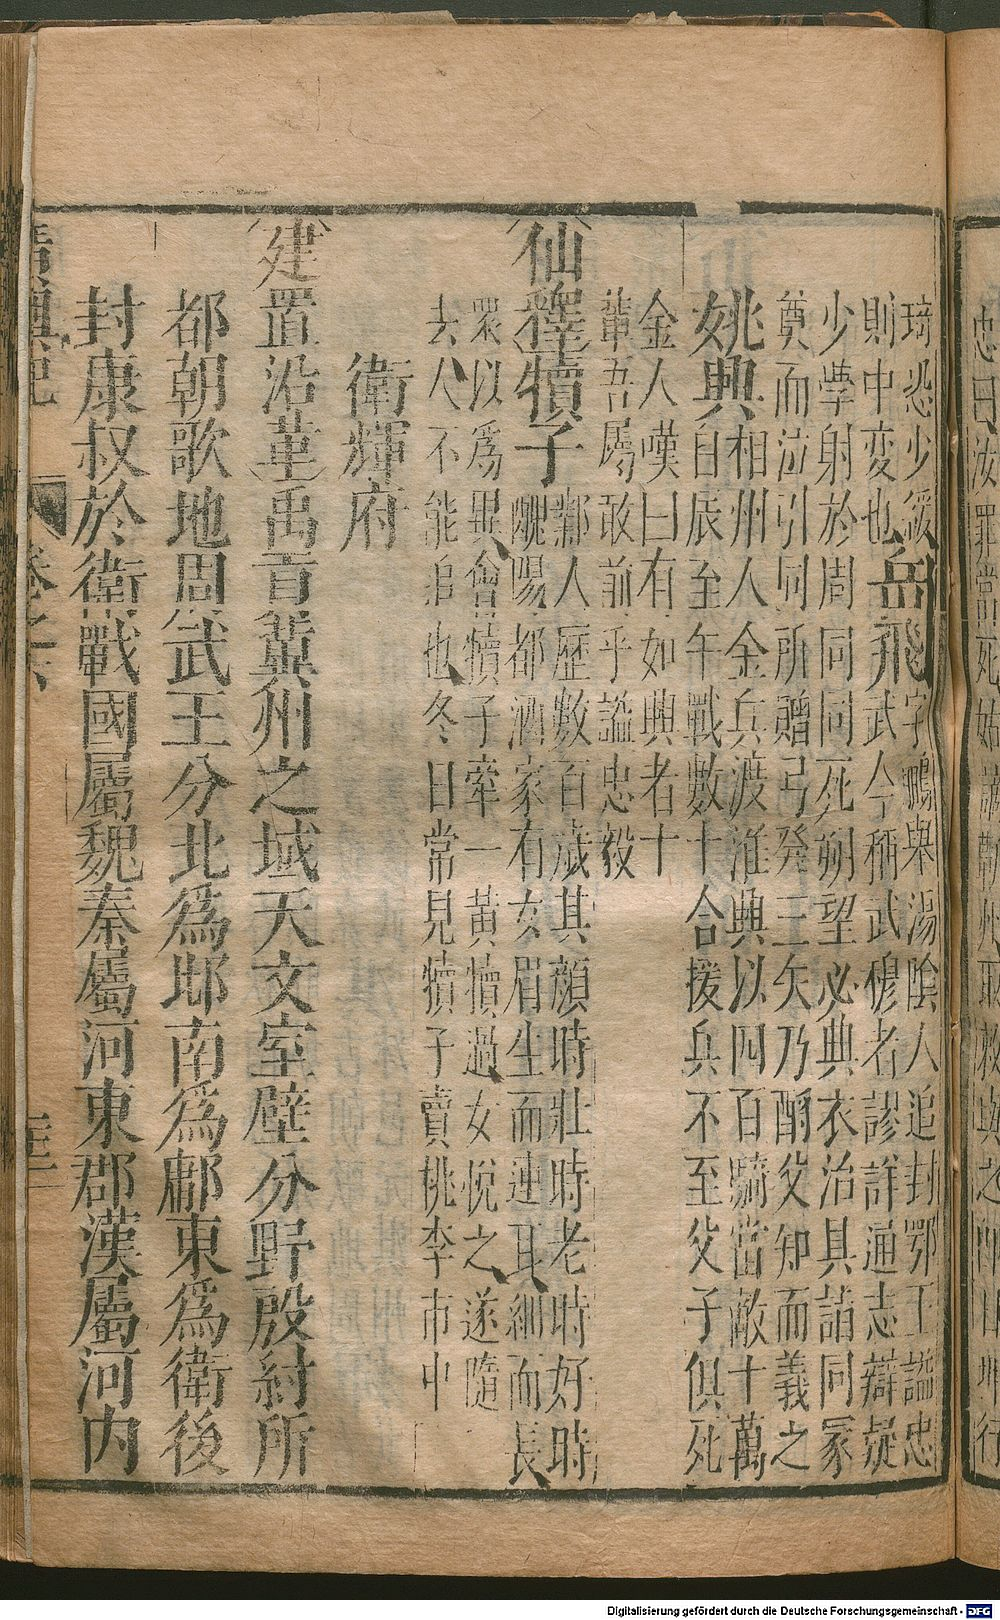 琦恐少緩
則中変也
岳飛
字鵬舉湯陰人追封鄂王謚忠
武今稱武穆者謬詳通志辯疑
少學射於周同同死朔望必典衣治具詣同冢
奠而泣引同所贈弓発三矢乃酹父知而義之
姚興
相州人金兵渡淮興以四百騎當敵十萬
自辰至午戰數十合援兵不至父子俱死
金人嘆曰有如興者十
輩吾屬敢前乎謚忠毅
仙釋犢子
鄴人歷數百歲其顏時壯時老時好時
醜陽都酒家有女眉生而連耳細而長
眾以爲異會犢子牽一黃犢過女悅之遂隨
去人不能追也冬日常見犢子賣桃李市中
衛輝府
建置沿革禹貢冀州之域天文室壁分野殷紂所
都朝歌地周武王分北爲邶南爲鄘東爲衛後
封康叔於衛戰國屬魏秦屬河東郡漢屬河内
卷之六
Digitalisierung gefördert durch die Deutsche Forschungsgemeinschaft - DFG